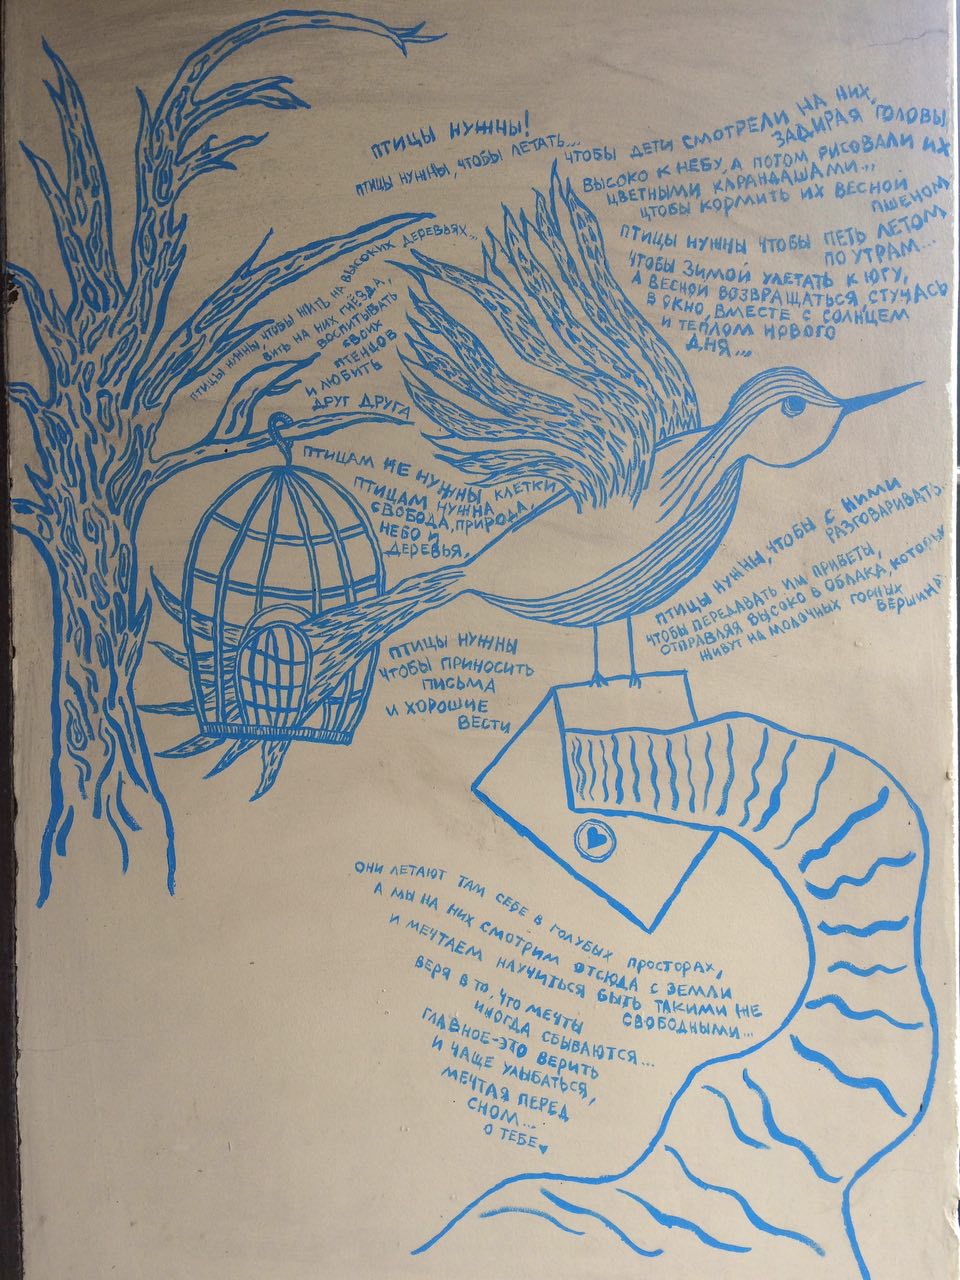 ПТИЦЫ НУЖНЫ!
ПТИЦЫ НУЖНЫ, ЧТОБЫ ЛЕТАТЬ...
ЧТОБЫ ДЕТИ СМОТРЕЛИ НА НИХ,
ЗАДИРАЯ ГОЛОВЫ
ВЫСОКО К НЕБУ, А ПОТОМ РИСОВАЛИ ИХ
ЦВЕТНЫМИ КАРАНДАШАМИ...
ЧТОБЫ КОРМИТЬ ИХ ВЕСНОЙ
ПШЕНОМ
ПТИЦЫ НУЖНЫ ЧТОБЫ ПЕТЬ ЛЕТОМ
ПО УТРАМ...
ЧТОБЫ ЗИМОЙ УЛЕТАТЬ К ЮГУ,
А ВЕСНОЙ ВОЗВРАЩАТЬСЯ СТУЧАСЬ
В ОКНО, ВМЕСТЕ С СОЛНЦЕМ
И ТЕПЛОМ НОВОГО
ДНЯ...
ПТИЦЫ НУЖНЫ ЧТОБЫ ЖИТЬ НА ВЫСОКИХ ДЕРЕВЬЯХ...
ВИТЬ НА НИХ ГНЁЗДА,
ВОСПИТЫВАТЬ
СВОИХ
ПТЕНЦОВ
И ЛЮБИТЬ
ДРУГ ДРУГА
ПТИЦАМ НЕ НУЖНЫ КЛЕТКИ
ПТИЦАМ НУЖНА
СВОБОДА, ПРИРОДА,
НЕБО И
ДЕРЕВЬЯ,
ПТИЦЫ НУЖНЫ, ЧТОБЫ С НИМИ
РАЗГОВАРИВАТЬ.
ЧТОБЫ ПЕРЕДАВАТЬ ИМ ПРИВЕТЫ,
ОТПРАВЛЯЯ ВЫСОКО В ОБЛАКА, КОТОРЫЕ
ЖИВУТ НА МОЛОЧНЫХ ГОРНЫХ
ВЕРШИНАХ
ПТИЦЫ НУЖНЫ
ЧТОБЫ ПРИНОСИТЬ
ПИСЬМА
И ХОРОШИЕ
ВЕСТИ
ОНИ ЛЕТАЮТ ТАМ СЕБЕ В ГОЛУБЫХ ПРОСТОРАХ,
А МЫ НА НИХ СМОТРИМ ОТСЮДА С ЗЕМЛИ
И МЕЧТАЕМ НАУЧИТЬСЯ БЫТЬ ТАКИМИ ЖЕ
СВОБОДНЫМИ...
ВЕРЯ В ТО, ЧТО МЕЧТЫ
ИНОГДА СБЫВАЮТСЯ...
ГЛАВНОЕ-ЭТО ВЕРИТЬ
И ЧАЩЕ УЛЫБАТЬСЯ,
МЕЧТАЯ ПЕРЕД
СНОМ...
О ТЕБЕ♥